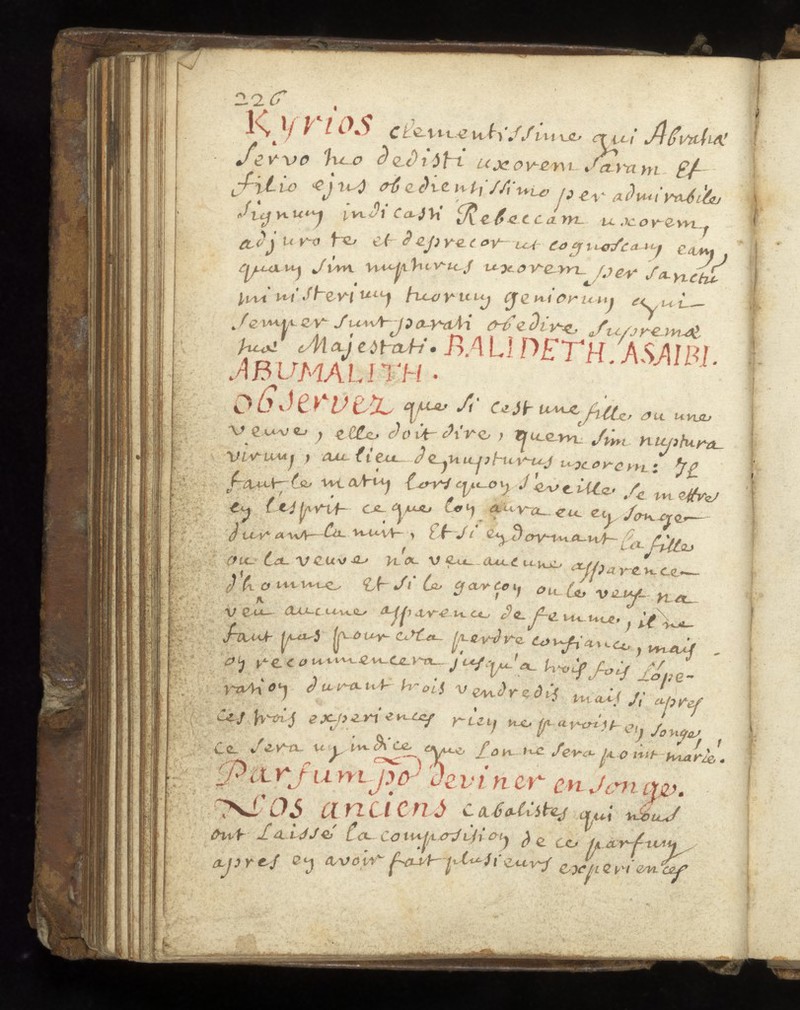 226
Kyrios clementissime qui Abrahæ
servo tuo dedisti uxorem Saram Et
filio ejus obedientissimo per admirabile
signum indicasti Rebeccam uxorem,
adjuro te et deprecor ut cognoscam eam,
quam sim nupturus uxorem per sanctū
ministerium tuorum geniorum qui
semper sunt parati obedire supremæ
tuæ Majestati. BALIDETH. ASAIBI.
ABUMALITH.
Observez que si cest une fille ou une
veuve, elle doit dire, quem sim nuptura
virum, au lieu de, nupturus uxorem: Il
faut le matin lorsquon s'éveille se mettre
en lésprit ce que lon aura eu en songe
durant la nuit, Et si en dormant la fille
ou la veuve n'a veu aucune apparence
d'homme Et si le garçon ou le veuf na
veû aucune apparence de femme, il ne
faut pas pour cela perdre confiance, mais
on recommencera jusqu'a trois fois Lópe-
ration durant trois vendredis mais si apres
ces trois experiences rien ne paroist en songe,
ce sera un indice que Lon ne sera point marié.
Parfum po deviner en songe.
Los anciens cabalistes qui nous
ont Laissé la composition de ce parfum
apres en avoir fait plusieurs experiences